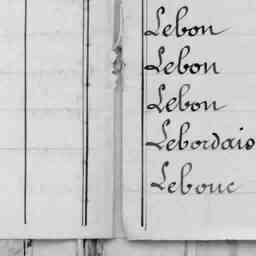 Lebon
Lebon
Lebon
Lebordais
Lebouc